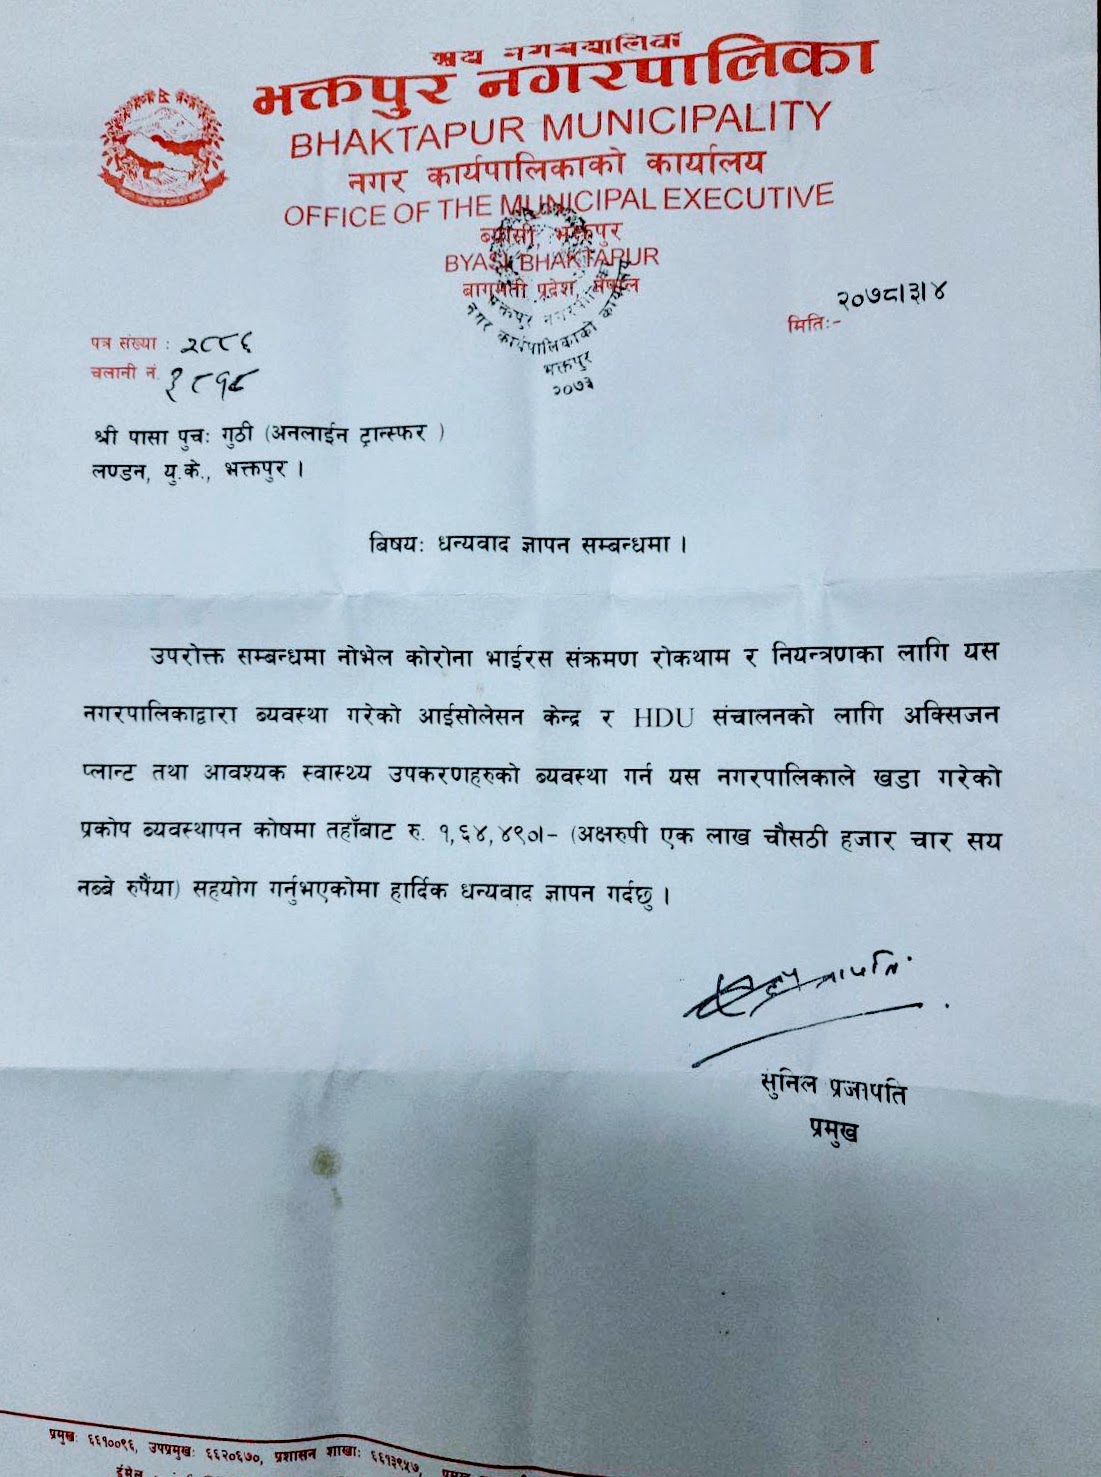 भक्तपुर नगरपालिका
BHAKTAPUR MUNICIPALITY
नगर कार्यपालिकाको कार्यालय
OFFICE OF THE MUNICIPAL EXECUTIVE
ब्यासी, भक्तपुर
BYASI, BHAKTAPUR
बागमती प्रदेश, नेपाल
भक्तपुर नगरपालिका
नगर कार्यपालिकाको कार्यालय
भक्तपुर
२०७३
मितिः- २०७८।३।४
पत्र संख्या :
चलानी नं.
श्री पासा पुचः गुठी (अनलाईन ट्रान्स्फर )
लण्डन, यु.के., भक्तपुर ।
बिषयः धन्यवाद ज्ञापन सम्बन्धमा ।
उपरोक्त सम्बन्धमा नोभेल कोरोना भाईरस संक्रमण रोकथाम र नियन्त्रणका लागि यस
नगरपालिकाद्वारा ब्यवस्था गरेको आईसोलेसन केन्द्र र HDU संचालनको लागि अक्सिजन
प्लान्ट तथा आवश्यक स्वास्थ्य उपकरणहरुको ब्यवस्था गर्न यस नगरपालिकाले खडा गरेको
प्रकोप ब्यवस्थापन कोषमा तहाँबाट रु. १,६४,४९०।- (अक्षरुपी एक लाख चौसठी हजार चार सय
नब्बे रुपैंया) सहयोग गर्नुभएकोमा हार्दिक धन्यवाद ज्ञापन गर्दछु ।
सुनिल प्रजापति
प्रमुख
प्रमुखः ६६१००९६, उपप्रमुखः ६६२०६७०, प्रशासन शाखाः ६६१३९५७,
ईमेल